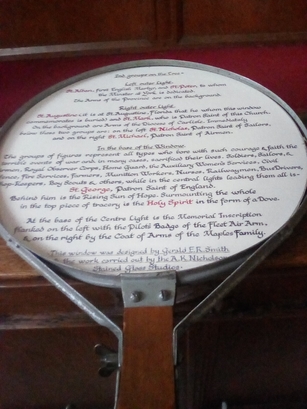 Left outer light.
St. Alban, first English Martyr, and St. Peter, to whom
the Minster of York is dedicated.
The Arms of the Province are in the background.
Right outer light.
St. Augustine (it is at St. Augustine, Florida that he whom this window
commemorates is buried) and St. Mark, who is Patron Saint of this Church.
On the background are the Arms of the Province of Canterbury. Immediately
below these two groups are: on the left St. Nicholas, Patron Saint of Sailors,
and on the right St. Michael, Patron Saint of Airmen.
In the base of the Window.
The groups of figures represent all types who here with such courage & faith the
world events over and in many cases, sacrificed their lives. Soldiers, Sailors, &
Airmen, Royal Observer Corps, Home Guard, the Auxiliary Womens Services, Civil
Defence, Fire Services, Farmers, Munition Workers, Nurses, Railwaymen, Bus Drivers,
Shop-Keepers, Boy Scouts &, others, while in the central lights leading them all is:
St. George, Patron Saint of England.
Behind him is the Rising Sun of Hope. Surmounting the whole
in the top piece of tracery is the Holy Spirit in the form of a Dove.
At the base of the Centre Light is the Memorial Inscription,
flanked on the left with the Pilots Badge of the Fleet Air Arm,
& on the right by the Coat of Arms of the Maples Family.
This window was designed by Gerald E.R. Smith
The work carried out by the A.K. Nicholson
Stained Glass Studios.